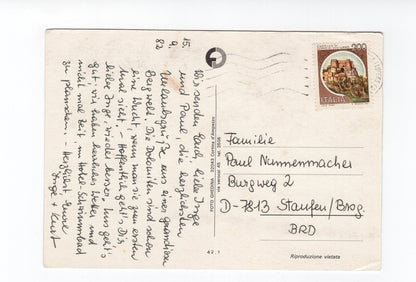 15.
9.
82
Wir senden Euch, liebe Inge
und Paul, die herzlichsten
Urlaubsgrüße aus einer grandiosen
Bergwelt. Die Dolomiten sind schon
eine Wucht, wenn man sie zum ersten
Mal sieht. – Hoffentlich geht's Dir,
liebe Inge, wieder besser. Uns geht's
gut: wir haben herrliches Wetter und
nicht mal Zeit, im Hotel-Schwimmbad
zu planschen. – Herzlichst Eure
200
ITALIA
Familie
Paul Nunnenmacher
Burgweg 2
D-7813 Staufen/Brsg.
BRD
42.1
Riproduzione vietata